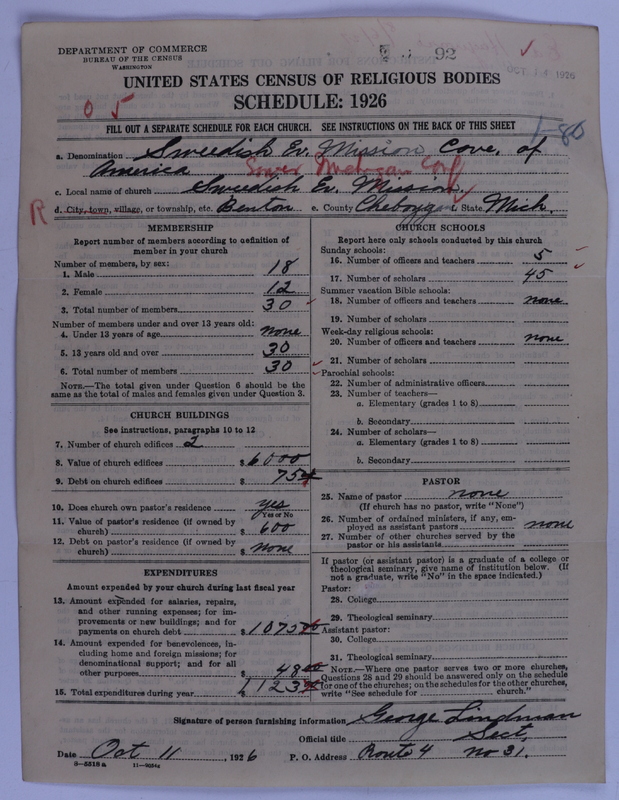 DEPARTMENT OF COMMERCE
BUREAU OF THE CENSUS
WASHINGTON
92
OCT 14 1926
UNITED STATES CENSUS OF RELIGIOUS BODIES
SCHEDULE: 1926
0 5
FILL OUT A SEPARATE SCHEDULE FOR EACH CHURCH. SEE INSTRUCTIONS ON THE BACK OF THIS SHEET
1-80
a. Denomination Swedish Ev. Mission Cove. of
America
c. Local name of church Swedish Ev. Mission
R
d. City, town, village, or township, etc. Benton e. County Cheboygan f. State Mich.
MEMBERSHIP
Report number of members according to definition of
member in your church
Number of members, by sex:
1. Male 18
2. Female 12
3. Total number of members 30
Number of members under and over 13 years old:
4. Under 13 years of age none
5. 13 years old and over 30
6. Total number of members 30
NOTE.—The total given under Question 6 should be the
same as the total of males and females given under Question 3.
CHURCH BUILDINGS
See instructions, paragraphs 10 to 12
7. Number of church edifices 2
8. Value of church edifices $ 6000
9. Debt on church edifices $ 75
10. Does church own pastor's residence yes
Yes or No
11. Value of pastor's residence (if owned by
church) $ 600
12. Debt on pastor's residence (if owned by
church) $ None
EXPENDITURES
Amount expended by your church during last fiscal year
13. Amount expended for salaries, repairs,
and other running expenses; for im-
provements or new buildings; and for
payments on church debt $ 1075
14. Amount expended for benevolences, in-
cluding home and foreign missions; for
denominational support; and for all
other purposes $ 48
15. Total expenditures during year 1123
CHURCH SCHOOLS
Report here only schools conducted by this church
Sunday schools:
16. Number of officers and teachers 5
17. Number of scholars 45
Summer vacation Bible schools:
18. Number of officers and teachers none
19. Number of scholars
Week-day religious schools:
20. Number of officers and teachers none
21. Number of scholars
Parochial schools:
22. Number of administrative officers
23. Number of teachers—
a. Elementary (grades 1 to 8)
b. Secondary
24. Number of scholars—
a. Elementary (grades 1 to 8)
b. Secondary
PASTOR
25. Name of pastor none
(If church has no pastor, write "None")
26. Number of ordained ministers, if any, em-
ployed as assistant pastors none
27. Number of other churches served by the
pastor or his assistants
If pastor (or assistant pastor) is a graduate of a college or
theological seminary, give name of institution below. (If
not a graduate, write "No" in the space indicated.)
Pastor:
28. College
29. Theological seminary
Assistant pastor:
30. College
31. Theological seminary
NOTE.—Where one pastor serves two or more churches,
Questions 28 and 29 should be answered only on the schedule
for one of the churches; on the schedules for the other churches,
write "See schedule for church."
Signature of person furnishing information George Lindman
Official title Sect.
Date Oct 11, 1926 P. O. Address Route 4 no 31.
8-5518 a 11-9054a